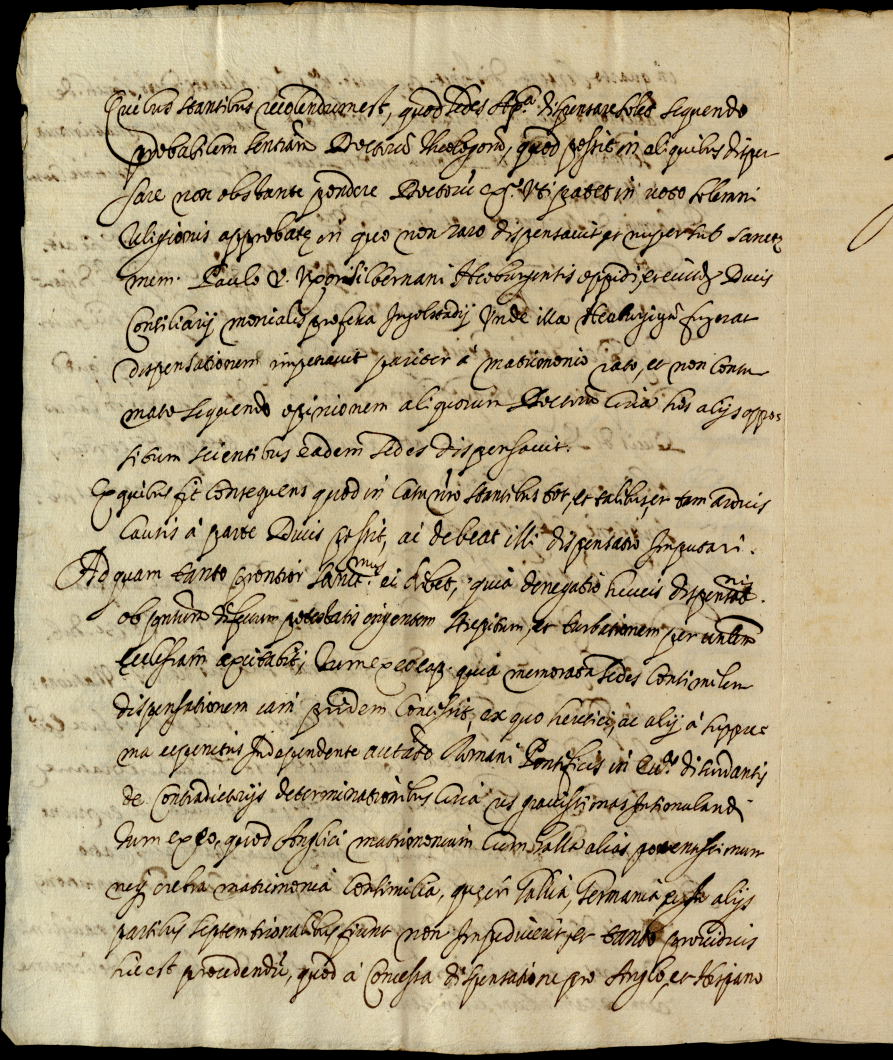 Quibus stantibus recolendum est, quod sedes Ap.ca dispensare solet sequendo
probabilem sentiam Doctorũ Theologorũ, quod possit in aliquibus dispen
sare non obstante pondere Doctorũ Uti patet in uoto solemni
religionis approbatę in quo non raro dispensauit, et nuper sub sanctę
mem. Paulo V. Uxor Silbernani oppidi, et eiusdẽ Ducis
Consiliarij monialis professa Ingolstadij Unde illa fugerat
dispensationem impetrauit pariter à matrimonio rato, et non consu
mato sequendo opinionem aliquorum Doctorũ circa hos alijs oppo=
situm scientibus eadem sedes dispensauit.
Ex quibus fit consequens quod in casu nro stantibus tot, et talibus, et tam arduis
causis à parte Ducis possit, ac debeat illi dispensatio Imputari.
Ad quam tanto promtior Sanct. ei debet, quia denegatio huius dispensat.nis
ob potestatis strepitum, et turbationem per
Ecclesiam excitabit, Tum ex eo quia memorata sedes consimilem
dispensationem iam pridem concessit, ex quo heretici, ac alij à supre=
ma Independente auctũte Romani Pontificis in
de contradictorijs determinationibus circa res grauissimas
Tum ex eo, quod Anglici matrimonium cum Galla alias potentissimum
neq̃ crebra matrimonia consimilia, quę in Gallia, Germania alijs
partibus septemtrionalibus fiunt non Impediuerit, et tanto
hic est procedendũ, quod à concessa dispensatione pro Anglo, et Hispano